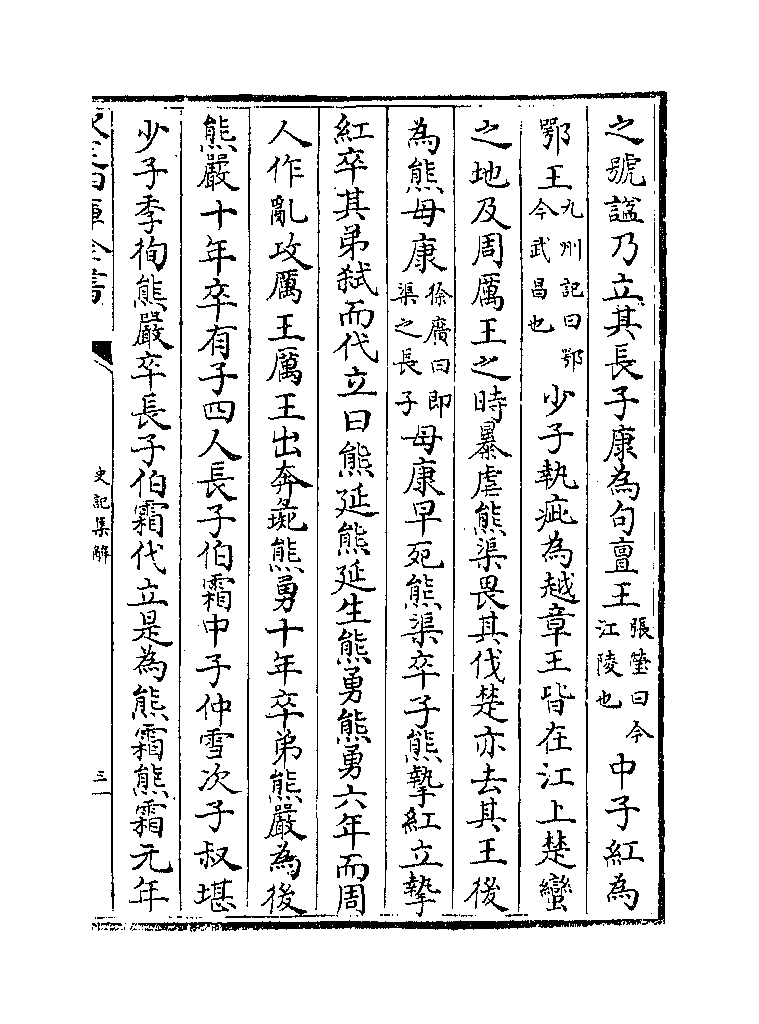 之號諡乃立其長子康為句亶王張瑩曰今江陵也中子紅為
鄂王九州記曰鄂今武昌也少子執疵為越章王皆在江上楚蠻
之地及周厲王之時暴虐熊渠畏其伐楚亦去其王後
為熊毋康徐廣曰即渠之長子毋康早死熊渠卒子熊摯紅立摯
紅卒其弟弑而代立曰熊延熊延生熊勇熊勇六年而周
人作亂攻厲王厲王出奔彘熊勇十年卒弟熊嚴為後
熊嚴十年卒有子四人長子伯霜中子仲雪次子叔堪
少子季徇熊嚴卒長子伯霜代立是為熊霜熊霜元年
欽定四庫全書
史記集解
三